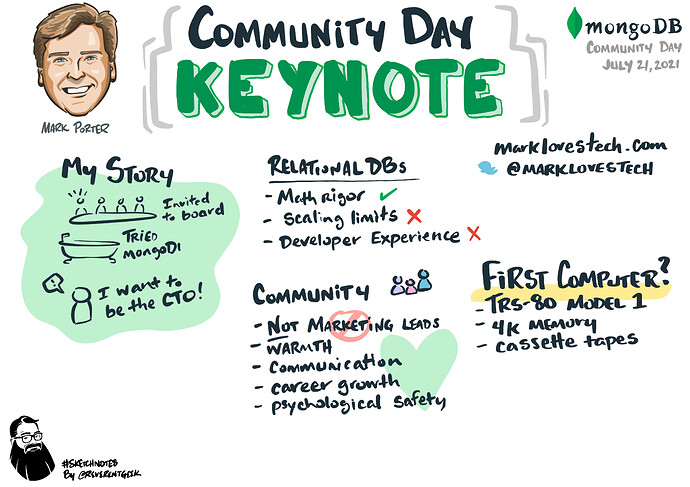 COMMUNITY DAY
KEYNOTE
mongoDB
COMMUNITY DAY
JULY 21, 2021
MARK PORTER
marklovestech.com
@MARKLOVESTECH
My STORY
Invited
to board
TRIED
mongoDB
I want to
be the CTO!
RELATIONAL DBs
- Math rigor ✓
- Scaling limits ✗
- Developer Experience ✗
COMMUNITY
- NOT MARKETING LEADS
- WARMTH
- Communication
- career growth
- psychological safety
FIRST COMPUTER?
- TRS-80 MODEL 1
- 4K MEMORY
- cassette tapes
#SKETCHNOTES
By @REVERENTGEEK